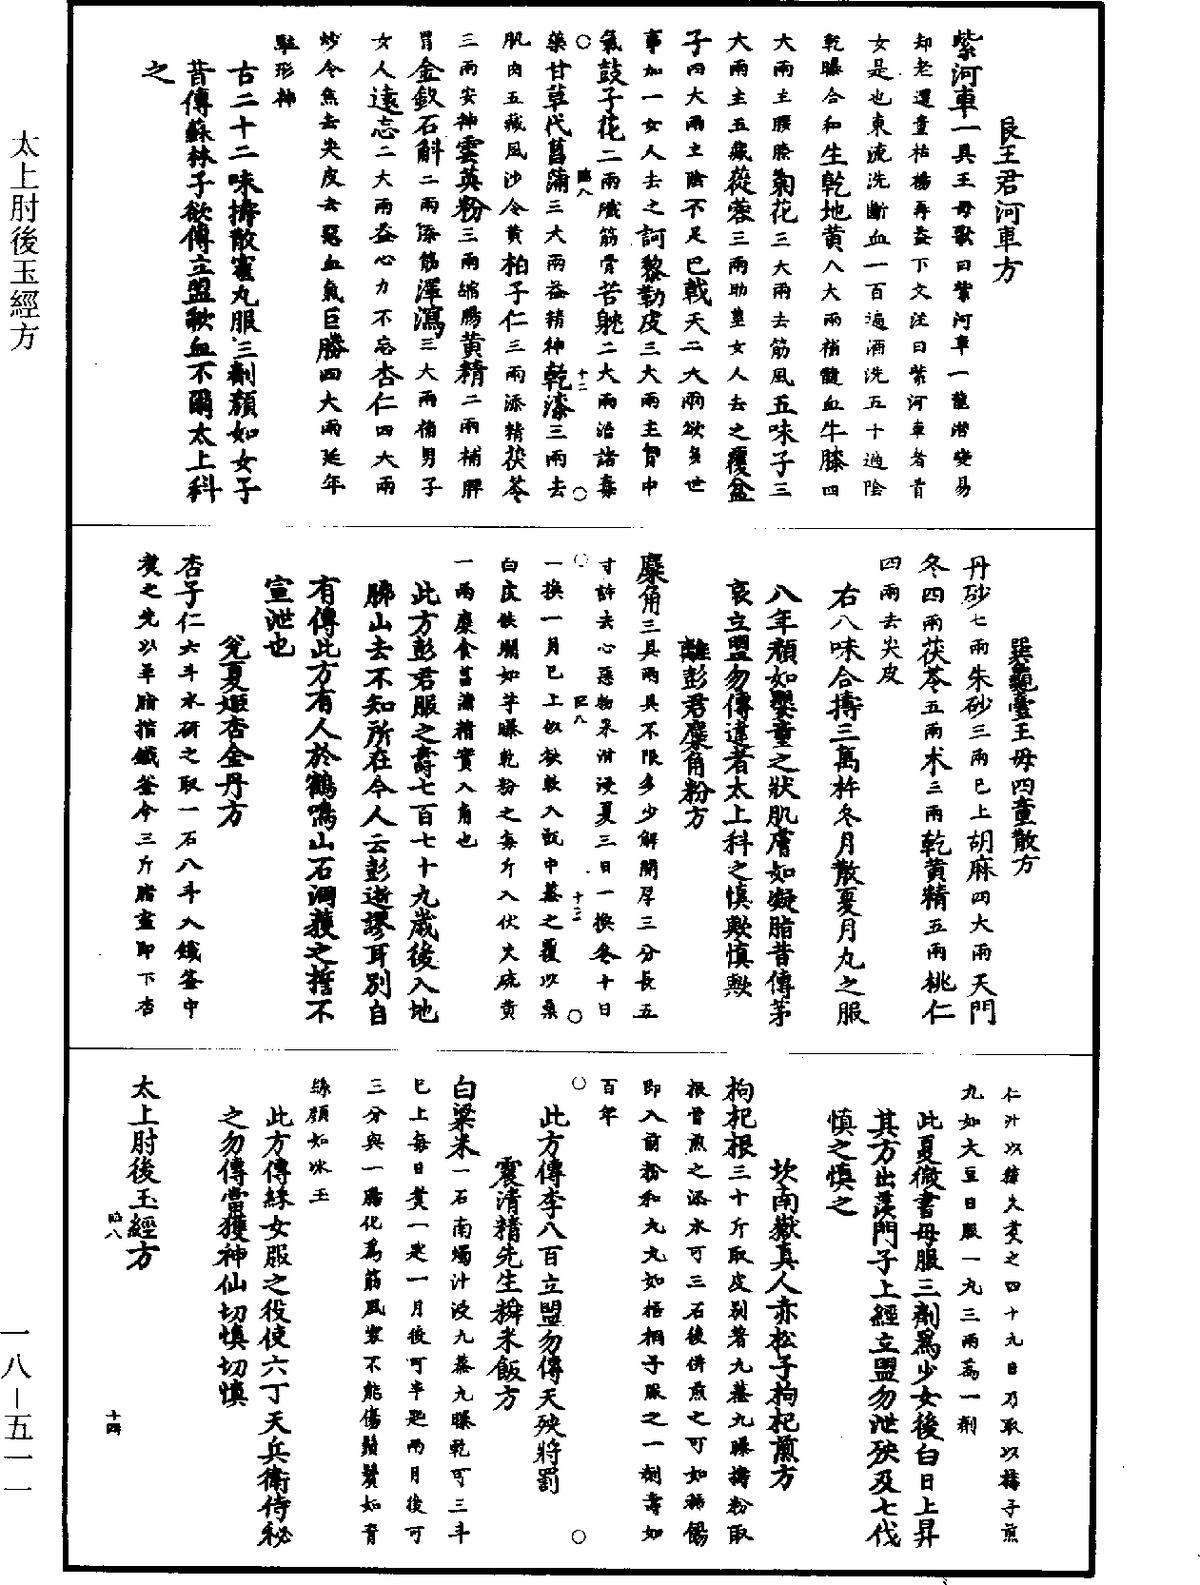 太上肘後玉經方
一八—五一一
艮王君河車方
紫河車一具王母歌曰紫河車一龍潛變易
却老還童枯楊再益下文注曰紫河車者首
女是也東流洗斷血一百遍酒洗五十過陰
乾曝合和生乾地黃八大兩補髓血牛膝四
大兩主腰膝菊花三大兩去筋風五味子三
大兩主五藏蓯蓉三兩助莖女人去之覆盆
子四大兩主陰不足巴戟天二大兩欲多世
事加一女人去之訶黎勒皮三大兩主胷中
氣鼓子花二兩殲筋骨苦躭二大兩治諸毒
藥甘草代菖蒲三大兩益精神乾漆三兩去
肌肉五藏風沙令黃柏子仁三兩添精茯苓
三兩安神雲英粉三兩縮腸黃精二兩補脾
胃金釵石斛二兩添筋澤瀉三大兩補男子
女人遠忘二大兩益心力不忘杏仁四大兩
炒令焦去尖皮去惡血氣巨勝四大兩延年
駐形神
古二十二味擣散蜜丸服三劑顏如女子
昔傳蘇林子欲傳立盟歃血不爾太上科
之
臨八
十二
巽龜臺王母四童散方
丹砂七兩朱砂三兩已上胡麻四大兩天門
冬四兩茯苓五兩术三兩乾黃精五兩桃仁
四兩去尖皮
右八味合擣三萬杵冬月散夏月丸之服
八年顏如嬰童之狀肌膚如凝脂昔傳茅
衷立盟勿傳違者太上科之慎歟慎歟
離彭君麋角粉方
麋角三具兩具不限多少解開厚三分長五
寸許去心惡物米泔浸夏三日一換冬十日
一換一月已上似欲軟入甑中蒸之覆以桑
白皮候爛如芋曝乾粉之每斤入伏火硫黃
一兩麋食菖蒲精實入角也
此方彭君服之壽七百七十九歲後入地
肺山去不知所在今人云彭逝謬耳別自
有傳此方有人於鶴鳴山石洞獲之誓不
宣泄也
兌夏姬杏金丹方
杏子仁六斗水研之取一石八斗入鐵釜中
煑之先以羊脂揩鐵釜令三斤脂盡即下杏
臨八
十三
仁汁以糠火煑之四十九日乃取以構子煎
丸如大豆日服一丸三兩爲一劑
此夏徵書母服三劑爲少女後白日上昇
其方出羨門子上經立盟勿泄殃及七代
慎之慎之
坎南嶽真人赤松子枸杞煎方
枸杞根三十斤取皮別著九蒸九曝擣粉取
根骨煎之添水可三石後併煎之可如稀餳
即入前粉和丸丸如梧桐子服之一劑壽如
百年
此方傳李八百立盟勿傳天殃將罰
震清精先生𥻦米飯方
白粱米一石南燭汁浸九蒸九曝乾可三斗
已上每日糞一匙一月後可半匙兩月後可
三分與一腸化爲筋風寒不能傷鬚鬢如青
絲顏如冰玉
此方傳緣女服之役使六丁天兵衛侍秘
之勿傳當獲神仙切慎切慎
太上肘後玉經方
臨八
十四